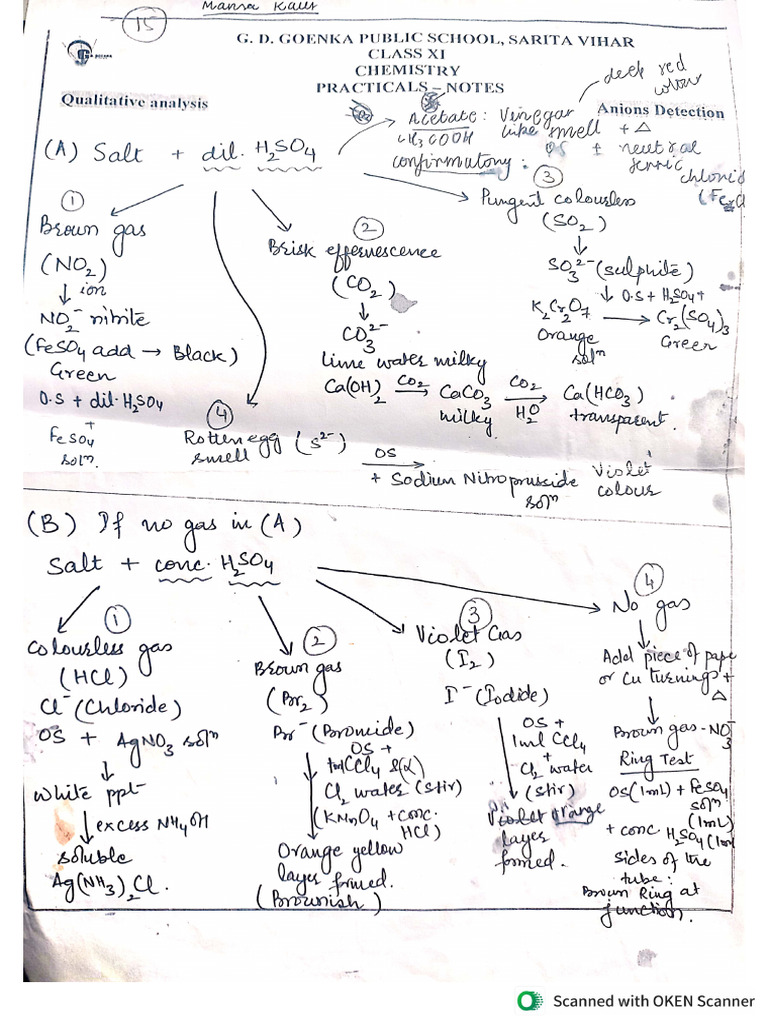 Manna Kaur
15
G. D. GOENKA PUBLIC SCHOOL, SARITA VIHAR
CLASS XI
CHEMISTRY
PRACTICALS – NOTES
Qualitative analysis
Anions Detection
deek red colour
Acetate : Vinegar like smell + △
CH3COOH
+ neutral ferric chlorid
confirmatory :
(A) Salt + dil. H2SO4
①
Brown gas
(NO2)
↓ ion
NO2- nitrite
(FeSO4 add → Black)
Green
O.S + dil. H2SO4
+
FeSO4
soln.
②
Brisk effervescence
(CO2)
↓
CO3 2-
Lime water milky
Ca(OH)2 CO2→ CaCO3 CO2→ H2O Ca(HCO3)
milky transparent.
③
Pungent colourless
(SO2)
↓
SO3 2- (sulphite)
↓ O.S + H2SO4 +
K2Cr2O7 → Cr2(SO4)3
Orange Green
soln
④
Rotten egg (S2-)
smell
OS →
+ Sodium Nitroprusside Violet
soln colour
(B) If no gas in (A)
Salt + conc. H2SO4
①
Colourless gas
(HCl)
Cl- (Chloride)
OS + AgNO3 soln
↓
White ppt
↓ excess NH4OH
soluble
Ag(NH3)2Cl.
②
Brown gas
(Br2)
Br- (Bromide)
OS +
1mlCCl4
Cl2 water (stir)
(KMnO4 + conc. HCl)
Orange yellow
layer frmed.
(Brownish)
③
Violet Gas
(I2)
I- (Iodide)
OS +
1ml CCl4
+
Cl2 water
(stir)
Violet
layer
formed.
④
No gas
↓
Add piece of pape
or Cu turnings +
△
Brown gas - NO3-
Ring Test
OS (1mL) + FeSO4
soln
(1mL)
+ conc H2SO4 (1m
sides of the
tube :
Brown Ring at
junction.
Scanned with OKEN Scanner